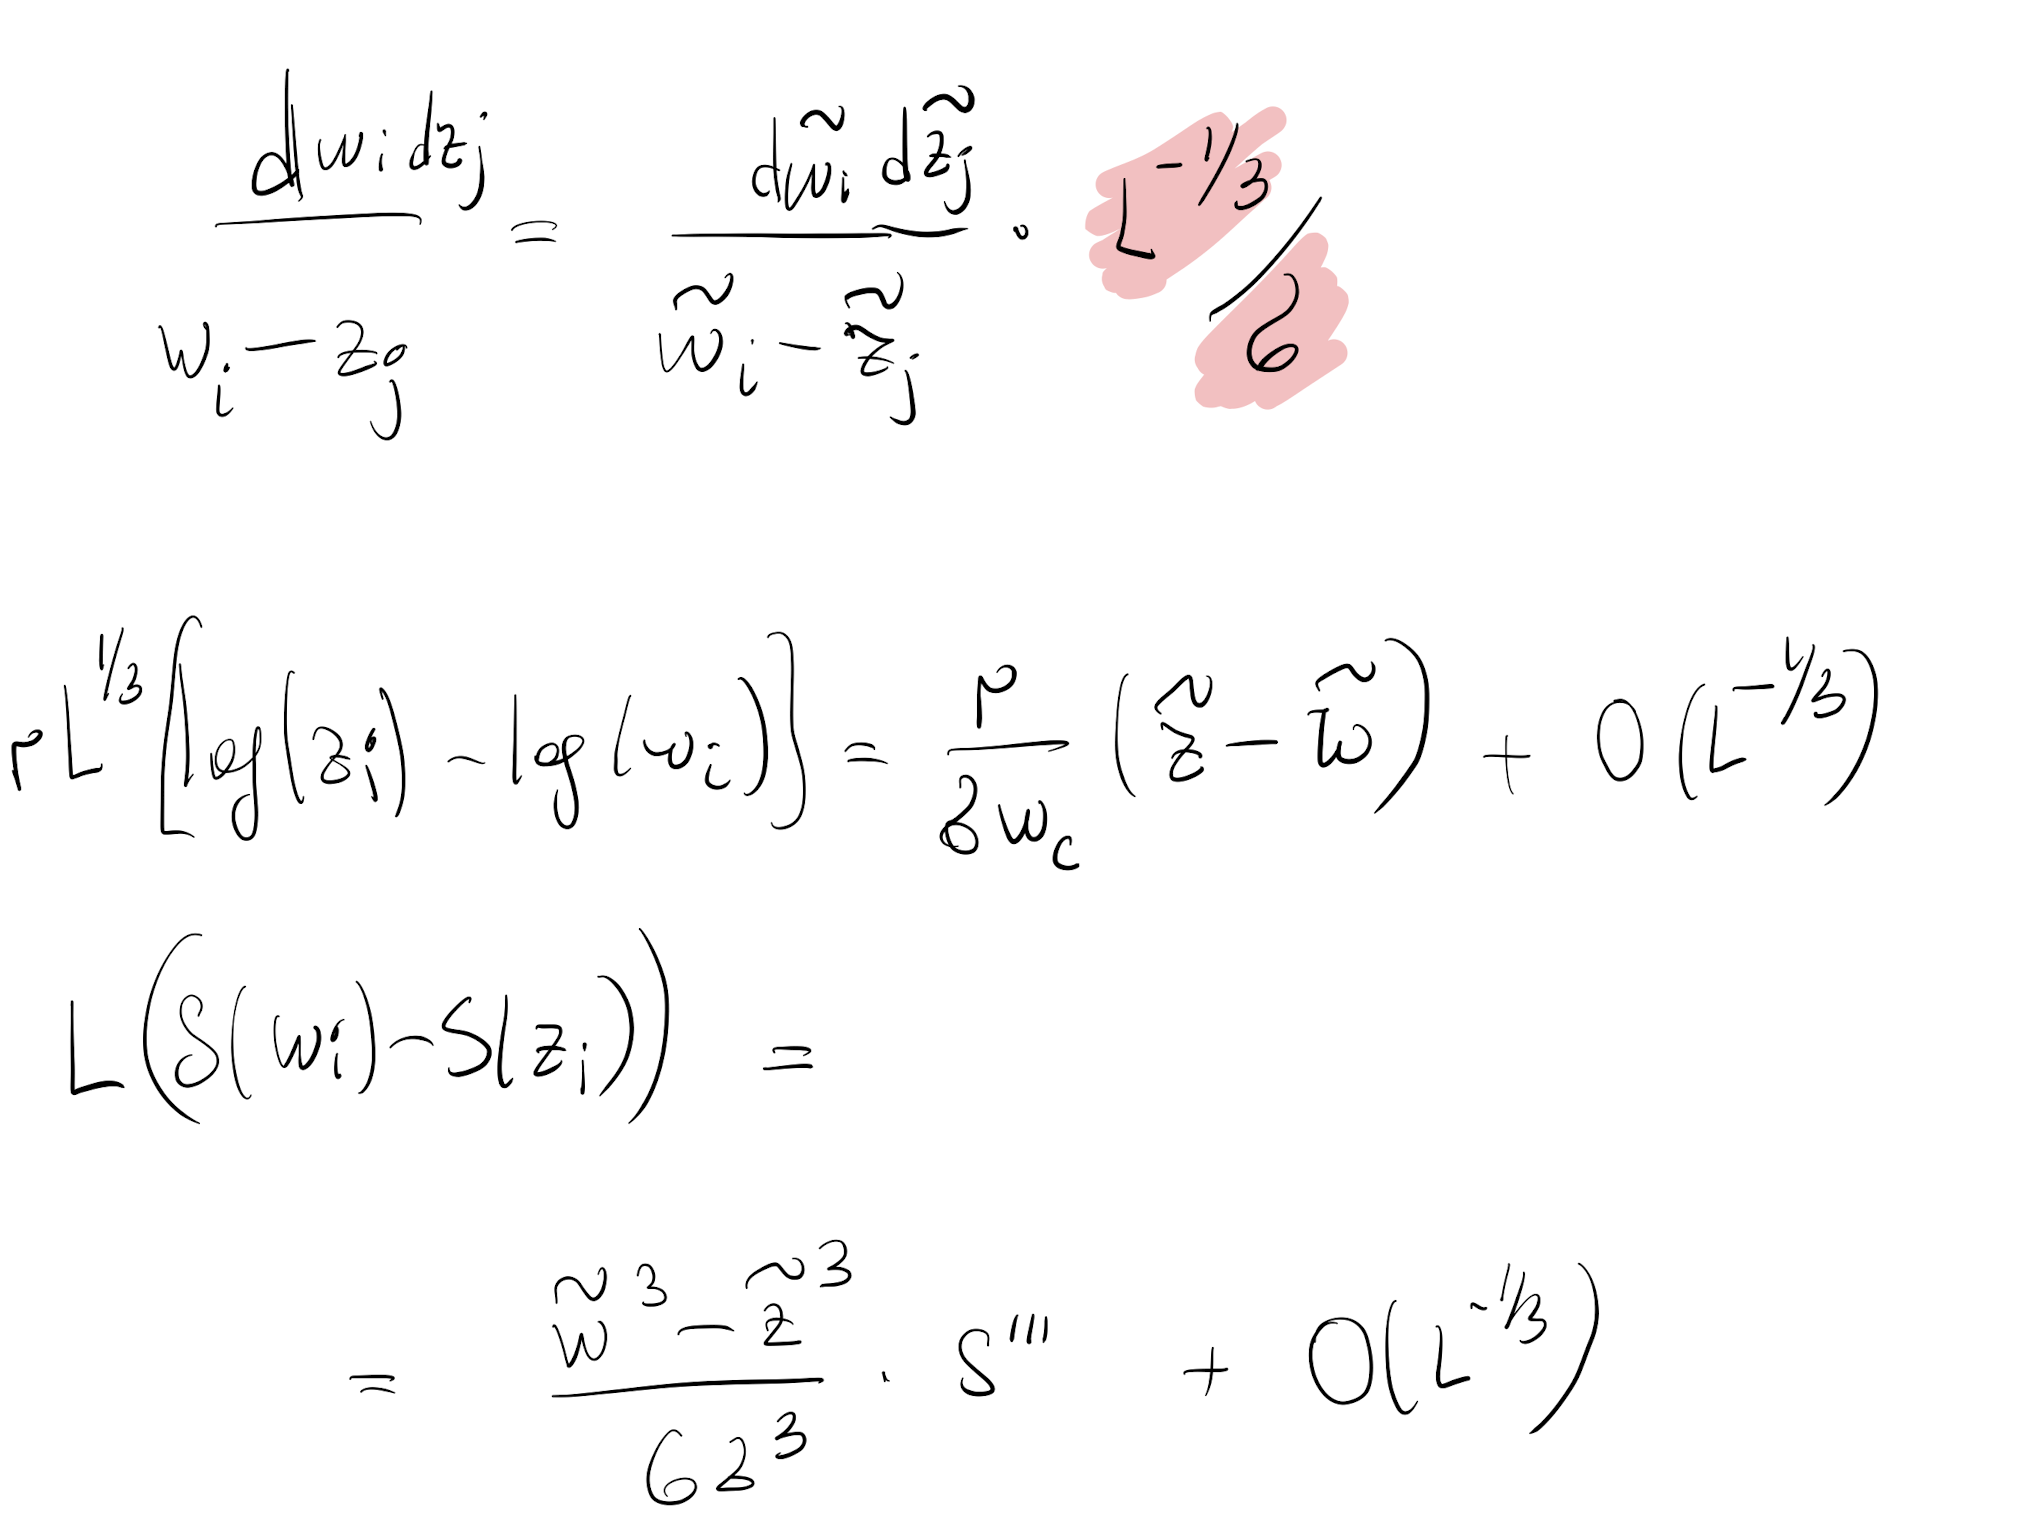 \frac{dw_i dz_j}{w_i - z_j} = \frac{d\tilde{w}_i d\tilde{z}_j}{\tilde{w}_i - \tilde{z}_j} \cdot L^{-1/3} / σ
rL^{1/3} [log(z_i) - log(w_i)] = \frac{r}{σ w_c} (\tilde{z} - \tilde{w}) + O(L^{-1/3})
L(S(w_i) - S(z_i)) =
= \frac{\tilde{w}^3 - \tilde{z}^3}{6σ^3} \cdot S''' + O(L^{-1/3})